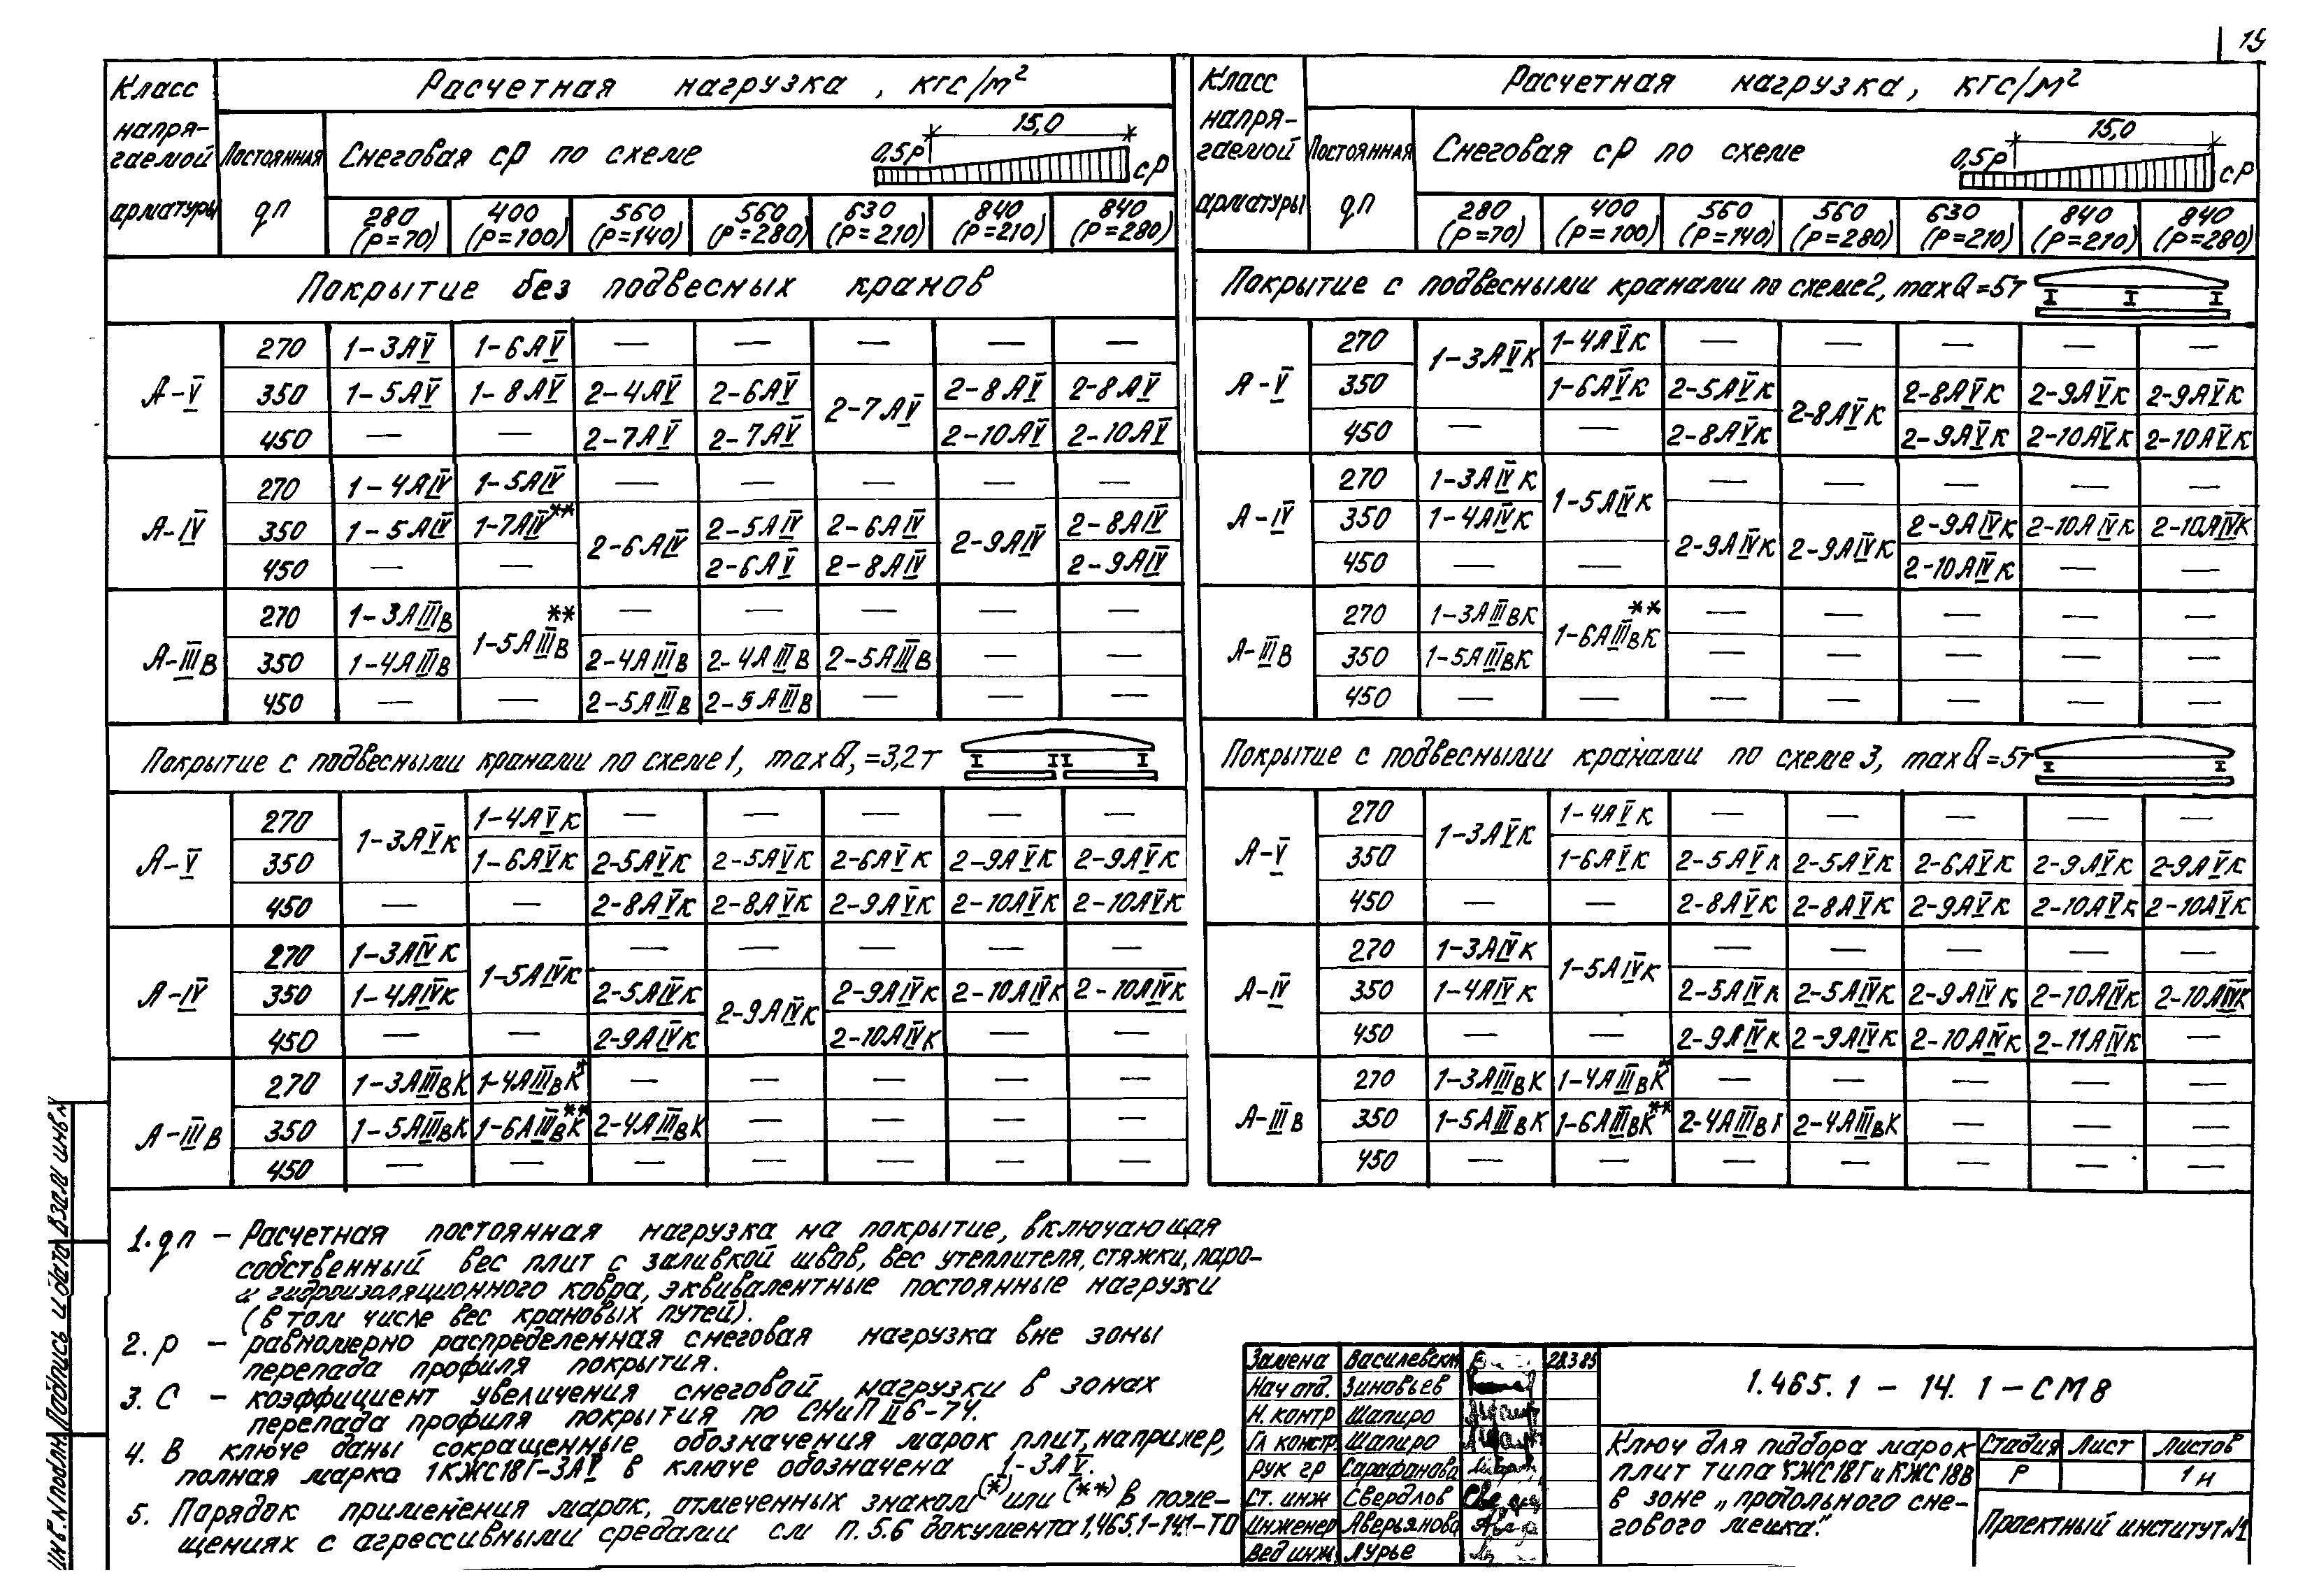 19
Класс напрягаемой арматуры | Расчетная нагрузка, кгс/м²
Постоянная qп | Снеговая сР по схеме 0,5Р 15,0 сР
280 (Р=70) | 400 (Р=100) | 560 (Р=140) | 560 (Р=280) | 630 (Р=210) | 840 (Р=210) | 840 (Р=280)
Покрытие без подвесных кранов
А-V | 270 | 1-3АV | 1-6АV | — | — | — | — | —
350 | 1-5АV | 1-8АV | 2-4АV | 2-6АV | 2-7АV | 2-8АV | 2-8АV
450 | — | — | 2-7АV | 2-7АV | 2-10АV | 2-10АV
А-IV | 270 | 1-4АIV | 1-5АIV | — | — | — | — | —
350 | 1-5АIV | 1-7АIV** | 2-6АIV | 2-5АIV | 2-6АIV | 2-9АIV | 2-8АIV
450 | — | — | 2-6АV | 2-8АIV | 2-9АIV
А-IIIв | 270 | 1-3АIIIв | 1-5АIIIв** | — | — | — | — | —
350 | 1-4АIIIв | 2-4АIIIв | 2-4АIIIв | 2-5АIIIв | — | —
450 | — | — | 2-5АIIIв | 2-5АIIIв | — | — | —
Покрытие с подвесными кранами по схеме 1, max Q,=3,2т
А-V | 270 | 1-3АVк | 1-4АVк | — | — | — | — | —
350 | 1-6АVк | 2-5АVк | 2-5АVк | 2-6АVк | 2-9АVк | 2-9АVк
450 | — | — | 2-8АVк | 2-8АVк | 2-9АVк | 2-10АVк | 2-10АVк
А-IV | 270 | 1-3АIVк | 1-5АIVк | — | — | — | — | —
350 | 1-4АIVк | 2-5АIVк | 2-9АIVк | 2-9АIVк | 2-10АIVк | 2-10АIVк
450 | — | — | 2-9АIVк | 2-10АIVк | — | —
А-IIIв | 270 | 1-3АIIIвк | 1-4АIIIвк* | — | — | — | — | —
350 | 1-5АIIIвк | 1-6АIIIвк** | 2-4АIIIвк | — | — | — | —
450 | — | — | — | — | — | — | —
Класс напрягаемой арматуры | Расчетная нагрузка, кгс/м²
Постоянная qп | Снеговая сР по схеме 0,5Р 15,0 сР
280 (Р=70) | 400 (Р=100) | 560 (Р=140) | 560 (Р=280) | 630 (Р=210) | 840 (Р=210) | 840 (Р=280)
Покрытие с подвесными кранами по схеме 2, max Q=5т
А-V | 270 | 1-3АVк | 1-4АVк | — | — | — | — | —
350 | 1-6АVк | 2-5АVк | 2-8АVк | 2-8АVк | 2-9АVк | 2-9АVк
450 | — | — | 2-8АVк | 2-9АVк | 2-10АVк | 2-10АVк
А-IV | 270 | 1-3АIVк | 1-5АIVк | — | — | — | — | —
350 | 1-4АIVк | 2-9АIVк | 2-9АIVк | 2-9АIVк | 2-10АIVк | 2-10АIVк
450 | — | — | 2-10АIVк | — | —
А-IIIв | 270 | 1-3АIIIвк | 1-6АIIIвк** | — | — | — | — | —
350 | 1-5АIIIвк | — | — | — | — | —
450 | — | — | — | — | — | — | —
Покрытие с подвесными кранами по схеме 3, max Q=5т
А-V | 270 | 1-3АVк | 1-4АVк | — | — | — | — | —
350 | 1-6АVк | 2-5АVк | 2-5АVк | 2-6АVк | 2-9АVк | 2-9АVк
450 | — | — | 2-8АVк | 2-8АVк | 2-9АVк | 2-10АVк | 2-10АVк
А-IV | 270 | 1-3АIVк | 1-5АIVк | — | — | — | — | —
350 | 1-4АIVк | 2-5АIVк | 2-5АIVк | 2-9АIVк | 2-10АIVк | 2-10АIVк
450 | — | — | 2-9АIVк | 2-9АIVк | 2-10АIVк | 2-11АIVк | —
А-IIIв | 270 | 1-3АIIIвк | 1-4АIIIвк* | — | — | — | — | —
350 | 1-5АIIIвк | 1-6АIIIвк** | 2-4АIIIвк | 2-4АIIIвк | — | — | —
450 | — | — | — | — | — | — | —
1. qп — Расчетная постоянная нагрузка на покрытие, включающая
собственный вес плит с заливкой швов, вес утеплителя, стяжки, паро-
и гидроизоляционного ковра, эквивалентные постоянные нагрузки
(в том числе вес крановых путей).
2. р — равномерно распределенная снеговая нагрузка вне зоны
перепада профиля покрытия.
3. С — коэффициент увеличения снеговой нагрузки в зонах
перепада профиля покрытия по СНиП II 6-74.
4. В ключе даны сокращенные обозначения марок плит, например,
полная марка 1КЖС18Г-3АV в ключе обозначена 1-3АV.
5. Порядок применения марок, отмеченных знаком (*) или (**) в поме-
щениях с агрессивными средами см п. 5.6 документа 1.465.1-14.1-ТО
Замена Василевски 28.3.85
Нач отд. Зиновьев
Н. контр Шапиро
Гл констр. Шапиро
Рук гр Сарафанова
Ст. инж Свердлов
Инженер Аверьянова
Вед инж. Лурье
1.465.1-14.1-СМ8
Ключ для подбора марок
плит типа КЖС18Г и КЖС18В
в зоне „продольного сне-
гового мешка."
Стадия Лист Листов
Р 1н
Проектный институт №1
Инв. № подл. Подпись и дата Взам инв. №